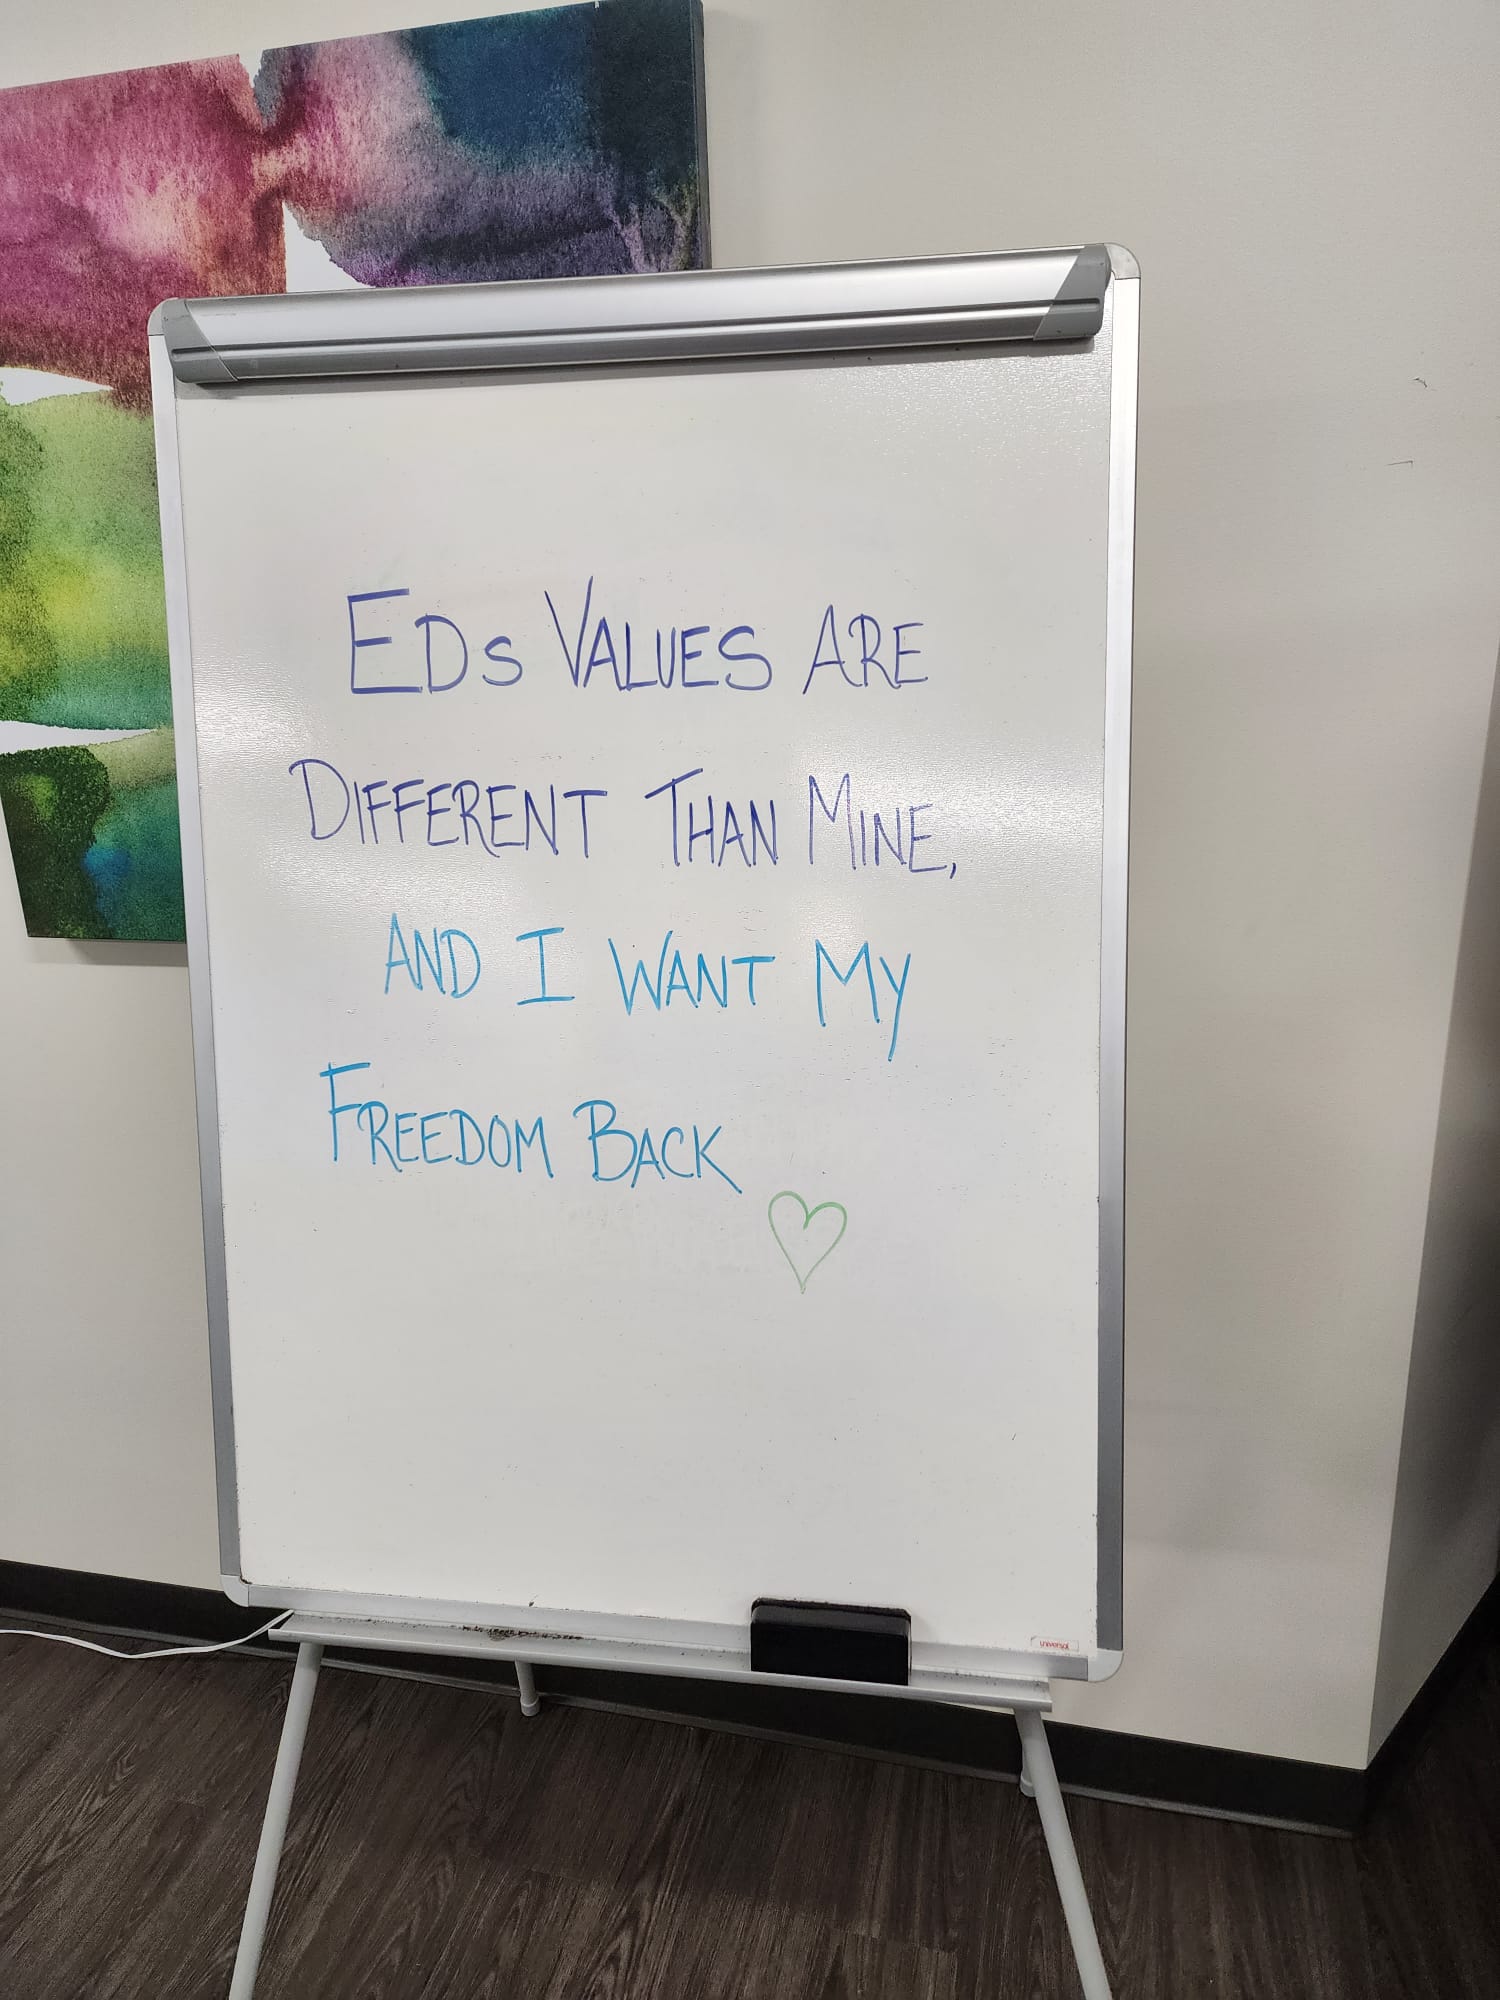 EDs VALUES ARE
DIFFERENT THAN MINE,
AND I WANT MY
FREEDOM BACK
universal